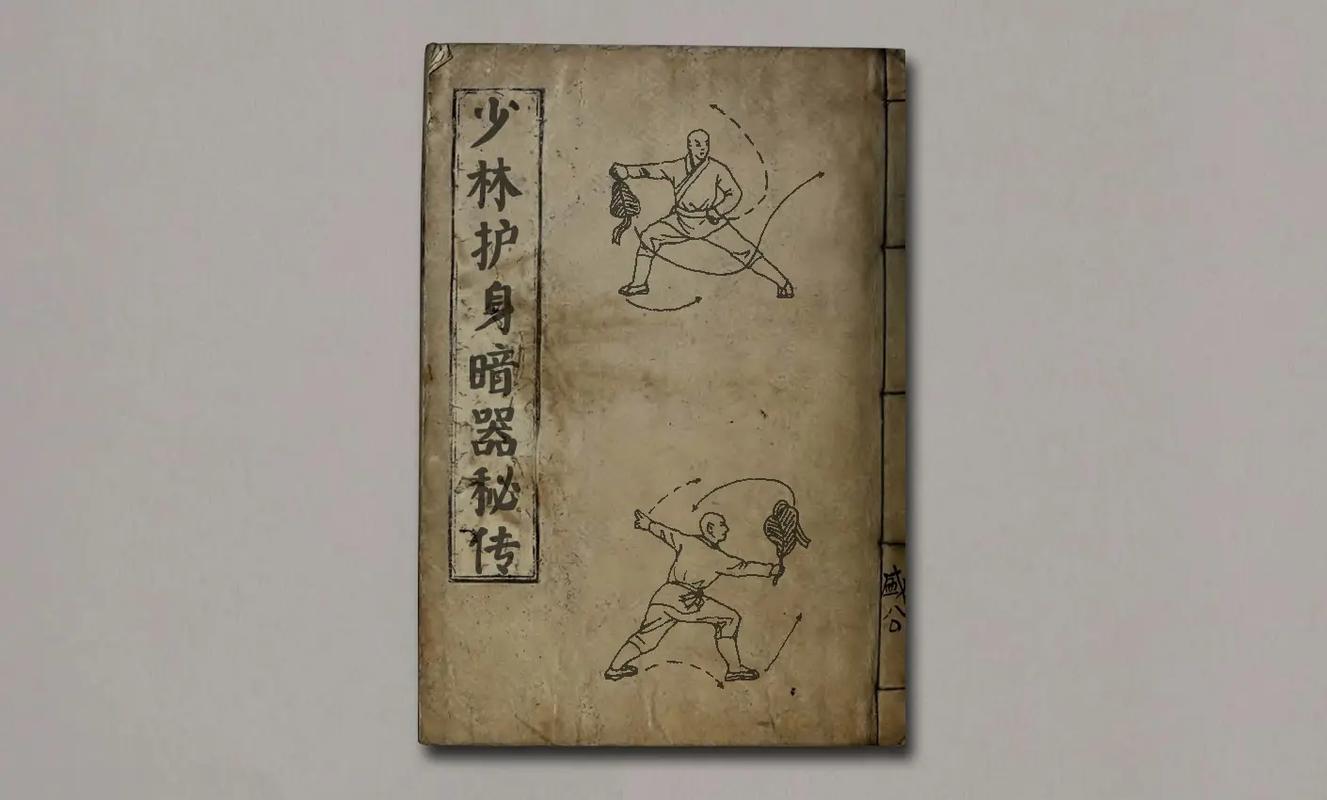 少林护身暗器秘传
盛公